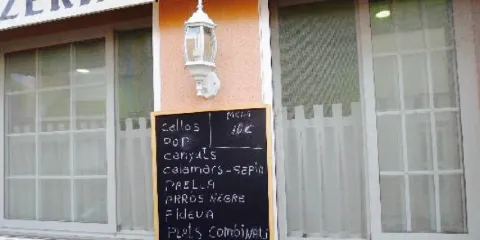 ZERIA
MENÚ
10€
CLOÏSSES
POP
CANYUTS
CALAMARS-SEPIA
PAELLA
ARROS NEGRE
FIDEUA
PLATS COMBINATS